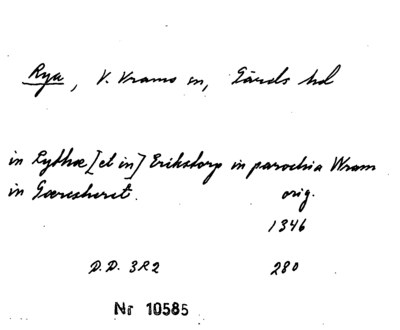 Rya, V. Vrams sn, Gärds hd
in Rythæ [et in] Eriksthorp in parochia Wram
in Gæresheret. orig.
1346
D.D. 3R2 280
Nr 10585